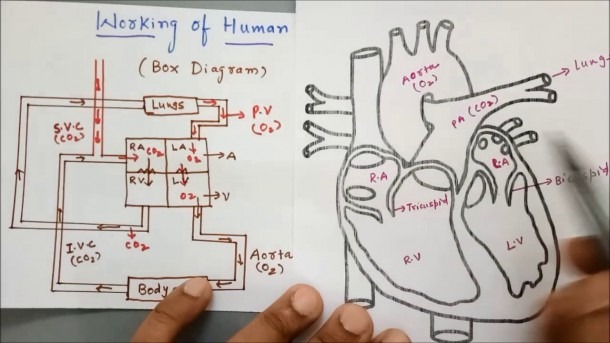 Working of Human
(Box Diagram)
Lungs
P.V
(O₂)
S.V.C
(CO₂)
RA CO₂
LA
O₂
A
R.V
L
O₂
V
CO₂
I.V.C
(CO₂)
Aorta
(O₂)
Body
Aorta
(O₂)
PA (CO₂)
Lung
R.A
R.A
Tricuspid
Bicuspid
R.V
L.V